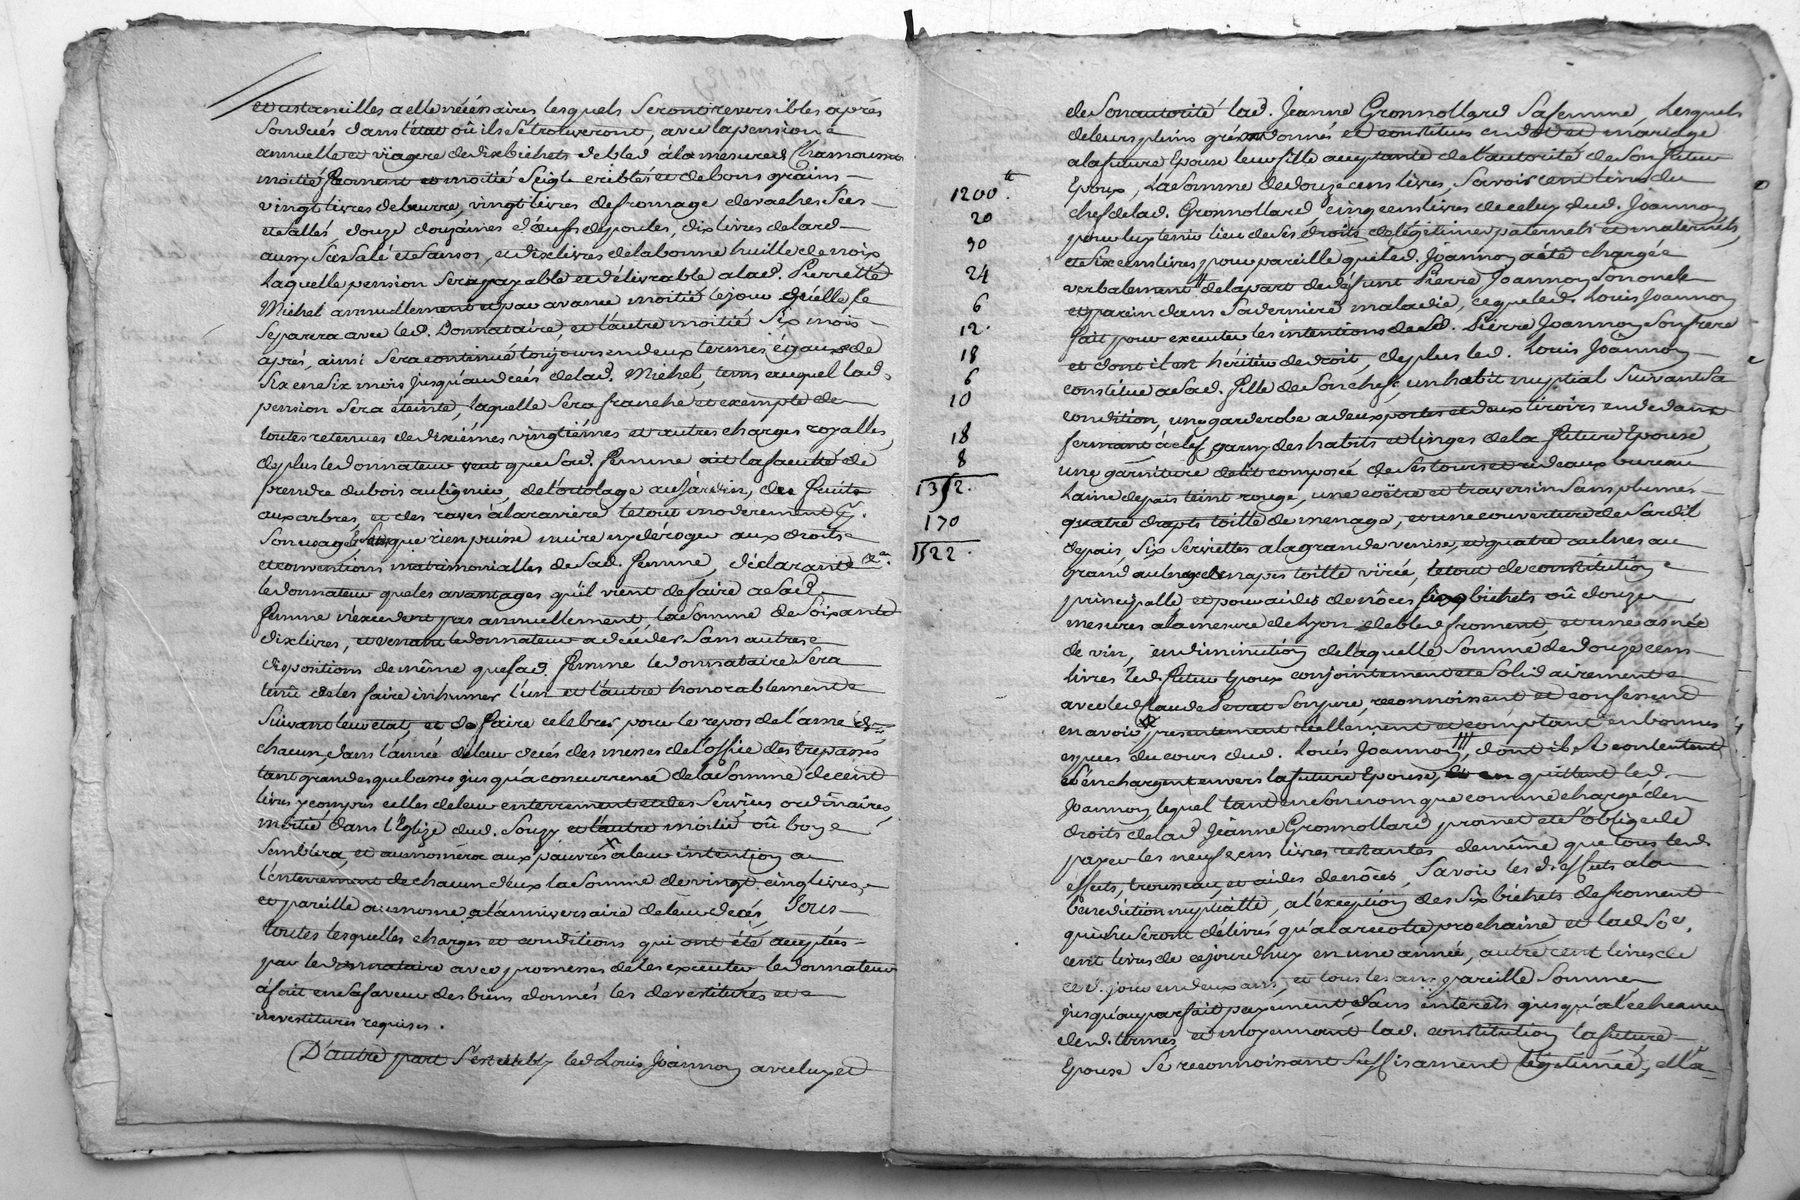 et ustanseilles a elle nécéssaires lesquels Seront reversibles aprés
Son décés dans l'état oû ils Sé trouveront, avec la pension
annuelle et viagere de dix bichets de bled á la mesure de Chamousset
moitié froment et moitié Seigle criblés et de bons grains
vingt livres de beurre, vingt livres de fromage de vaches Sées
et Sallés douze douzaines d'œufs de poules, dix livres de lard
aussy Séc Salé et Sans os, et dix livres de la bonne huille de noix
Laquelle pension Sera payable et délivrable a lad. Pierrette
Michel annuellement et par avance moitié le jour qu'elle Se
Separera avec led. Donnataire, et l'autre moitié Six mois
aprés, ainsi Sera continué toujours en deux termes égaux de
Six en Six mois jusqu'au décés de lad. Michel, tems auquel lad.
pension Sera éteinte, laquelle Sera franche et exempte de
toutes retenues de dixiémes vingtiémes et autres charges royalles,
de plus le donnateur veut que Sad. femme ait la faculté de
prendre du bois au lignier, de l'ortolage au jardin, des fruits
aux arbres, et des raves á la raviére le tout moderement
Son usage que rien puisse nuire ny déroger aux droits
et conventions matrimonialles de Sad. femme, déclarant
le donnateur que les avantages qu'il vient de faire a Sad.
femme n'excedent pas annuellement la Somme de Soixante
dix livres, et venant le donnateur a décéder Sans autres
dispositions de même que Sad. femme le donnataire Sera
tenu de les faire inhumer l'un et l'autre honorablement
Suivant leur état, et de faire célébrer pour le repos de l'ame de
chacun, dans l'année de leur décés des messes de l'office des trepassés
tant grandes que basses jusqu'a concurrense de la Somme de cent
livres y compris celles de leur enterrement et des Services ordinaires,
moitié dans l'Eglize dud. Souzy et l'autre moitié oû bon
Semblera, et aumonéra aux pauvres a leur intention au
l'enterrement de chacun d'eux la Somme de vingt cinq livres,
et pareille aumosne a l'anniversaire de leur décés, Sous
toutes lesquelles charges et conditions qui ont été acceptées
par le donnataire avec promesses de les executer le donnateur
á fait en Sa faveur des biens donnés les devestitures et
investitures requises.
D'autre part S'est étably led Louis Joannon avec luy et
1200 ₶.
20
30
24
6
12.
18
6
10
18
8
1352.
170
1522.
de Son autorité lad. Jeanne Gronnollard Sa femme, Lesquels
de leurs pleins grés ont donnés et constitués en dot et mariage
a la future Epouse leur fille acceptante de l'autorité de Son futur
Epoux, La Somme de douze cens livres, Savoir cent livres du
chef de lad. Gronnollard cinq cens livres de celuy dud. Joannon
pour luy tenir lieu de Ses droits de légitimes paternels et maternels,
et Six cens livres pour pareille que led. Joannon a été chargée
verbalement de la part de défunt Pierre Joannon Son oncle
et parrein dans Sa derniére maladie, ce que led. Louis Joannon
fait pour executer les intentions de Sd. Pierre Joannon Son frere
et dont il est héritier de droit, de plus led. Louis Joannon
constitue a Sad. fille de Son chef, un habit nuptial Suivant Sa
condition, une garderobe a deux portes et deux tiroirs en dedans
fermant á clef garny des habits et linges de la future Epouse,
une garniture de lit composée de Ses tours et rideaux bureau
Laine de païs teint rouge, une coëtre et traversin Sans plumes
quatre draps toille de menage, et une couverture de Sardil
de païs, Six Serviettes a la grande venise, et quatre aulnes au
grand aulnage de napes toille virée, le tout de constitution
principalle et pour aides de nôces Six bichets oû douze
mesures a la mesure de Lyon de bled froment, et une asnée
de vin, en diminution de laquelle Somme de douze cens
livres led. futur Epoux conjointement et Solidairement
avec led. Claude Son pere, reconnoissent et confessent
en avoir presentement réellement et comptant en bonnes
especes du cours dud. Louis Joannon, dont ils Se contentent
et S'en chargent envers la future Epouse, et en quittent led.
Joannon, lequel tant en Son nom que comme chargé des
droits de lad. Jeanne Gronnollard promet et s'oblige de
payer les neuf cens livres restantes de même que tous lesd.
éffets, trousseau, et aides de nôces, Savoir les d. effets a la
bénédiction nuptialle, a l'éxception des Six bichets de froment
qui ne Seront délivrés qu'a la recolte prochaine et lad. Soe.
cent livres de ce jourd'huy en une année, autre cent livres de
ce d. jour en deux ans, et tous les ans pareille Somme
jusqu'au parfait payement Sans interêts jusqu'a l'echeance
desd. termes, et moyennant lad. constitution la future
Epouse Se reconnoissant Suffisament légitimée, elle a